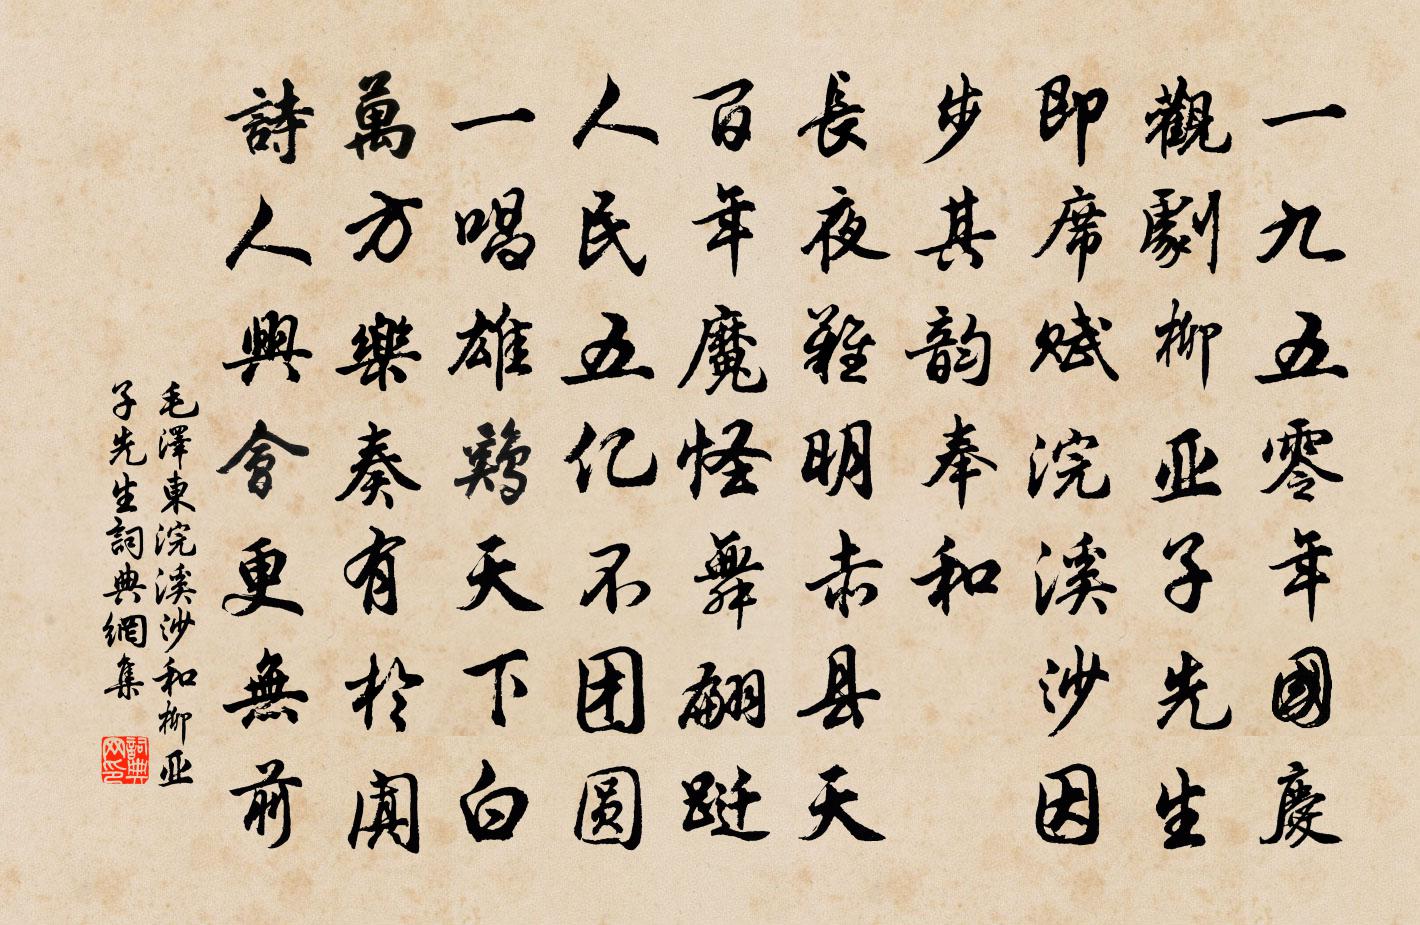 一九五零年國慶
觀劇柳亚子先生
即席赋浣溪沙因
步其韵奉和
長夜難明赤县天
百年魔怪舞翩跹
人民五亿不团圆
一唱雄鷄天下白
萬方樂奏有於闐
詩人興會更無前
毛澤東浣溪沙和柳亚
子先生詞典網集
詞典
网印